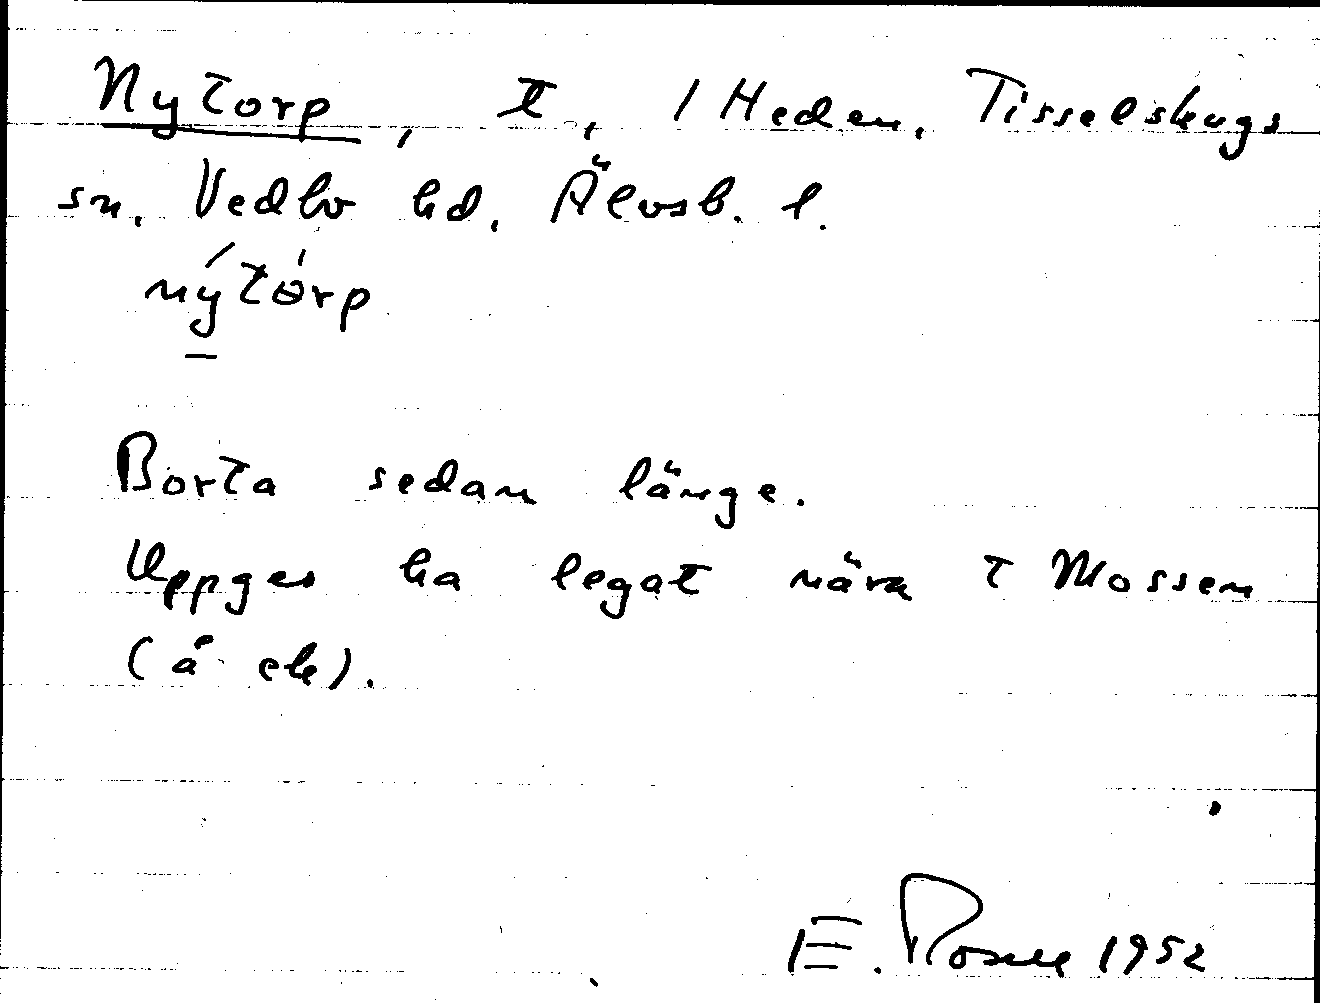 Nytorp, t, / Heden, Tisselskogs
sn. Vedbo hd. Älvsb. l.
nýtòrp
Borta sedan länge.
Uppges ha legat nära t Mossen
(å ek).
E. Rosell 1952